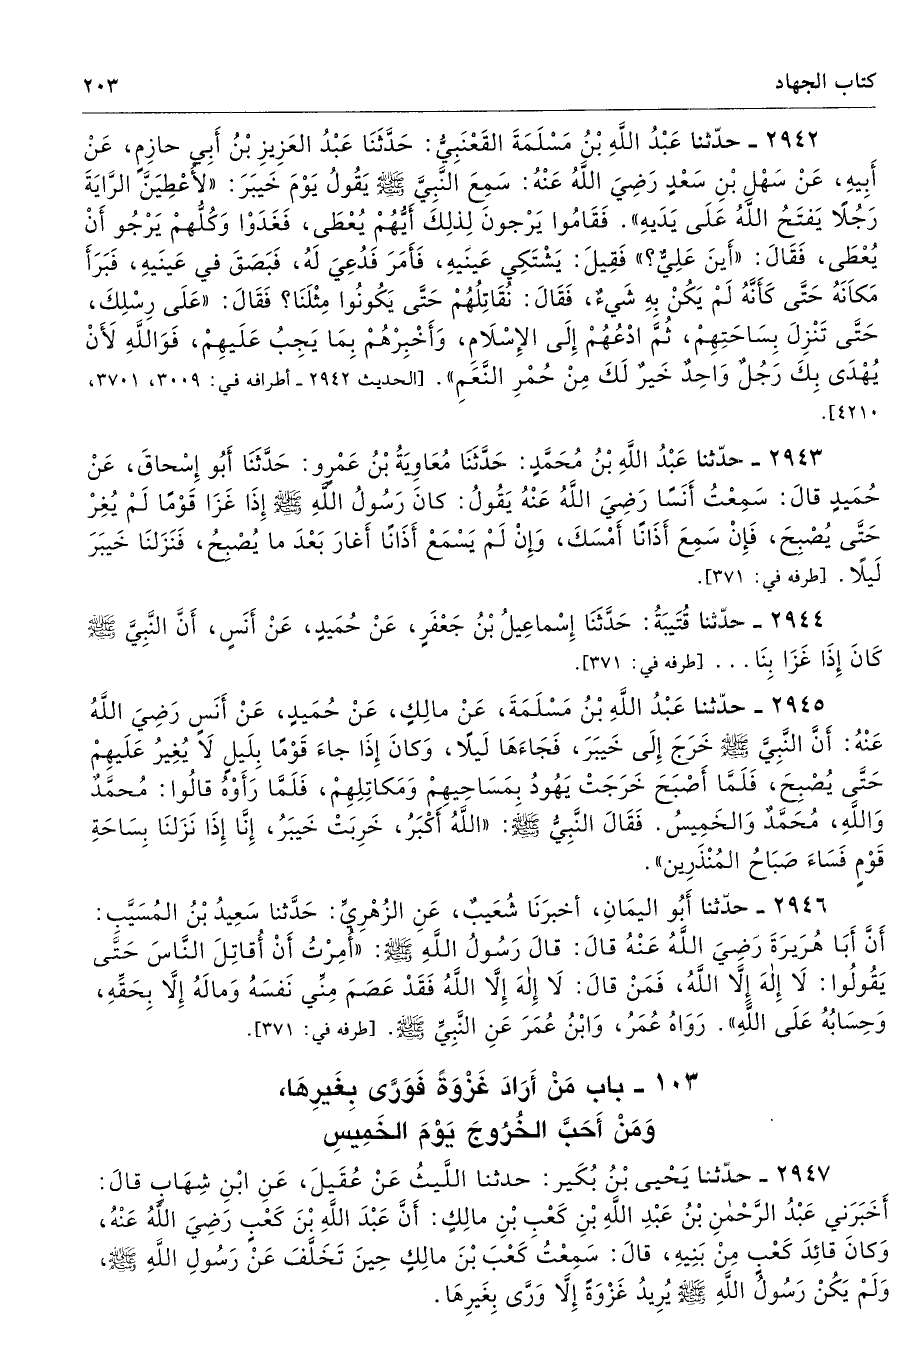 كتاب الجهاد ٢٠٣
٢٩٤٢ ـ حدّثنا عَبْدُ اللَّهِ بْنُ مَسْلَمَةَ القَعْنَبِيُّ: حَدَّثَنَا عَبْدُ العَزِيزِ بْنُ أَبِي حازِمٍ، عَنْ
أَبِيهِ، عَنْ سَهْلِ بْنِ سَعْدٍ رَضِيَ اللَّهُ عَنْهُ: سَمِعَ النَّبِيَّ ﷺ يَقُولُ يَوْمَ خَيبَرَ: «لأُعْطِيَنَّ الرَّايَةَ
رَجُلًا يَفْتَحُ اللَّهُ عَلَى يَدَيهِ». فَقَامُوا يَرْجونَ لِذلِكَ أَيُّهُمْ يُعْطَى، فَغَدَوْا وَكُلُّهمْ يَرْجُو أَنْ
يُعْطى، فَقَالَ: «أَينَ عَلِيٌّ؟» فَقِيلَ: يَشْتَكِي عَينَيهِ، فَأَمَرَ فَدُعِيَ لَهُ، فَبَصَقَ في عَينَيهِ، فَبَرَأَ
مَكانَهُ حَتَّى كَأَنَّهُ لَمْ يَكُنْ بِهِ شَيءٌ، فَقَالَ: نُقَاتِلُهُمْ حَتَّى يَكُونُوا مِثْلَنَا؟ فَقَالَ: «عَلَى رِسْلِكَ،
حَتَّى تَنْزِلَ بِسَاحَتِهِمْ، ثُمَّ ادْعُهُمْ إِلَى الإِسْلَامِ، وَأَخْبِرْهُمْ بِمَا يَجِبُ عَلَيهِمْ، فَوَاللَّهِ لَأَنْ
يُهْدَى بِكَ رَجُلٌ وَاحِدٌ خَيرٌ لَكَ مِنْ حُمْرِ النَّعَمِ». [الحديث ٢٩٤٢ ـ أطرافه في: ٣٠٠٩، ٣٧٠١،
٤٢١٠].
٢٩٤٣ ـ حدّثنا عَبْدُ اللَّهِ بْنُ مُحَمَّدٍ: حَدَّثَنَا مُعَاوِيَةُ بْنُ عَمْرٍو: حَدَّثَنَا أَبُو إِسْحاقَ، عَنْ
حُمَيدٍ قالَ: سَمِعْتُ أَنَسًا رَضِيَ اللَّهُ عَنْهُ يَقُولُ: كانَ رَسُولُ اللَّهِ ﷺ إِذَا غَزَا قَوْمًا لَمْ يُغِرْ
حَتَّى يُصْبِحَ، فَإِنْ سَمِعَ أَذَانًا أَمْسَكَ، وَإِنْ لَمْ يَسْمَعْ أَذَانًا أَغارَ بَعْدَ ما يُصْبِحُ، فَنَزَلنَا خَيبَرَ
لَيلًا. [طرفه في: ٣٧١].
٢٩٤٤ ـ حدّثنا قُتَيبَةُ: حَدَّثَنَا إِسْماعِيلُ بْنُ جَعْفَرٍ، عَنْ حُمَيدٍ، عَنْ أَنَسٍ، أَنَّ النَّبِيَّ ﷺ
كَانَ إِذَا غَزَا بِنَا... [طرفه في: ٣٧١].
٢٩٤٥ ـ حدّثنا عَبْدُ اللَّهِ بْنُ مَسْلَمَةَ، عَنْ مالِكٍ، عَنْ حُمَيدٍ، عَنْ أَنَسٍ رَضِيَ اللَّهُ
عَنْهُ: أَنَّ النَّبِيَّ ﷺ خَرَجَ إِلَى خَيبَرَ، فَجَاءَهَا لَيلًا، وَكانَ إِذَا جاءَ قَوْمًا بِلَيلٍ لَا يُغِيرُ عَلَيهِمْ
حَتَّى يُصْبِحَ، فَلَمَّا أَصْبَحَ خَرَجَتْ يَهُودُ بِمَسَاحِيهِمْ وَمَكاتِلِهِمْ، فَلَمَّا رَأَوْهُ قالُوا: مُحمَّدٌ
وَاللَّهِ، مُحَمَّدٌ وَالخَمِيسُ. فَقَالَ النَّبِيُّ ﷺ: «اللَّهُ أَكْبَرُ، خَرِبَتْ خَيبَرُ، إِنَّا إِذَا نَزَلنَا بِسَاحَةِ
قَوْمٍ فَسَاءَ صَبَاحُ المُنْذَرِين».
٢٩٤٦ ـ حدّثنا أَبُو اليمَانِ، أخبرَنَا شُعَيبٌ، عَنِ الزُهْرِيِّ: حَدَّثنا سَعِيدُ بْنُ المُسَيَّبِ:
أَنَّ أَبَا هُرَيرَةَ رَضِيَ اللَّهُ عَنْهُ قالَ: قالَ رَسُولُ اللَّهِ ﷺ: «أُمِرْتُ أَنْ أُقاتِلَ النَّاسَ حَتَّى
يَقُولُوا: لَا إِلٰهَ إِلَّا اللَّهُ، فَمَنْ قالَ: لَا إِلٰهَ إِلَّا اللَّهُ فَقَدْ عَصَمَ مِنِّي نَفسَهُ وَمالَهُ إِلَّا بِحَقِّهِ،
وَحِسَابُهُ عَلَى اللَّهِ». رَوَاهُ عُمَرُ، وَابْنُ عُمَرَ عَنِ النَّبِيِّ ﷺ. [طرفه في: ٣٧١].
١٠٣ ـ باب مَنْ أَرَادَ غَزْوَةً فَوَرَّى بِغَيرِهَا،
وَمَنْ أَحَبَّ الخُرُوجَ يَوْمَ الخَمِيسِ
٢٩٤٧ ـ حدّثنا يَحْيى بْنُ بُكَير: حدثنا اللَّيثُ عَنْ عُقَيلٍ، عَنِ ابْنِ شِهَابٍ قالَ:
أَخَبَرَني عَبْدُ الرَّحْمٰنِ بْنُ عَبْدِ اللَّهِ بْنِ كَعْبِ بْنِ مالِكٍ: أَنَّ عَبْدَ اللَّهِ بْنَ كَعْبٍ رَضِيَ اللَّهُ عَنْهُ،
وَكانَ قائِدَ كَعْبٍ مِنْ بَنِيهِ، قالَ: سَمِعْتُ كَعْبَ بْنَ مالِكٍ حِينَ تَخَلَّفَ عَنْ رَسُولِ اللَّهِ ﷺ،
وَلَمْ يَكُنْ رَسُولُ اللَّهِ ﷺ يُرِيدُ غَزْوَةً إِلَّا وَرَّى بِغَيرِهَا.